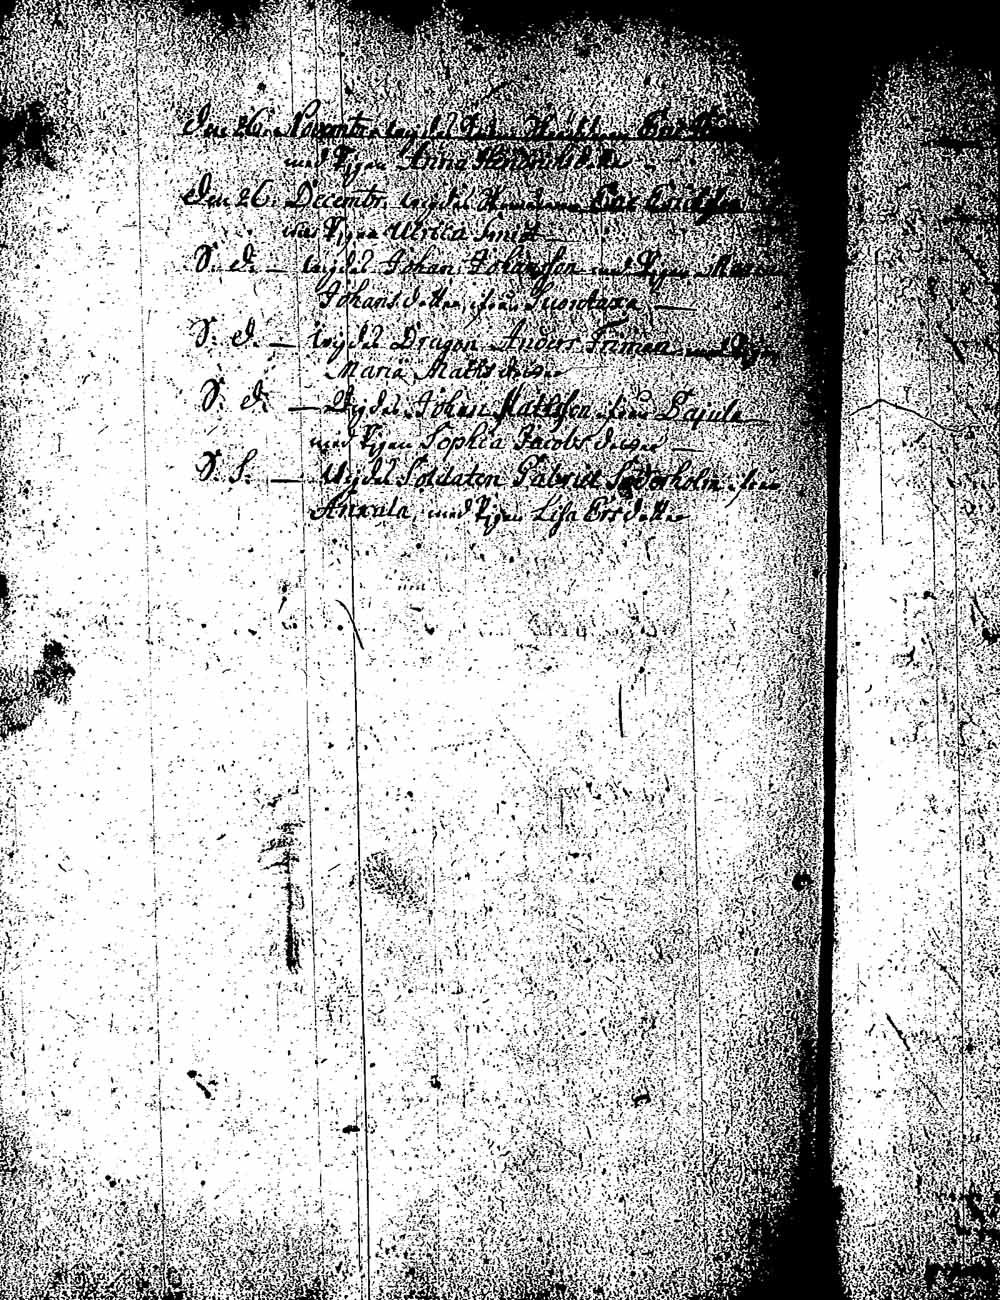 Den 26 November wigdes Eric
med Pigan Anna
Den 26. Decembr. wigdes Eric Ericksson
med Pigan Ulrica
S. d. — wigdes Johan Johansson med Pigan Maria
Johans dotter, från
S. d. — wigdes Dragon Anders Friman med Pigan
Maria Matts dotter
S. d. — Wigdes Johan Mattsson från Pajula
med Pigan Sophia Jacobs dotter —
S. d. — wigdes Soldaten Gabriel Söderholm från
Annala, med Pigan Lisa Ers dotter